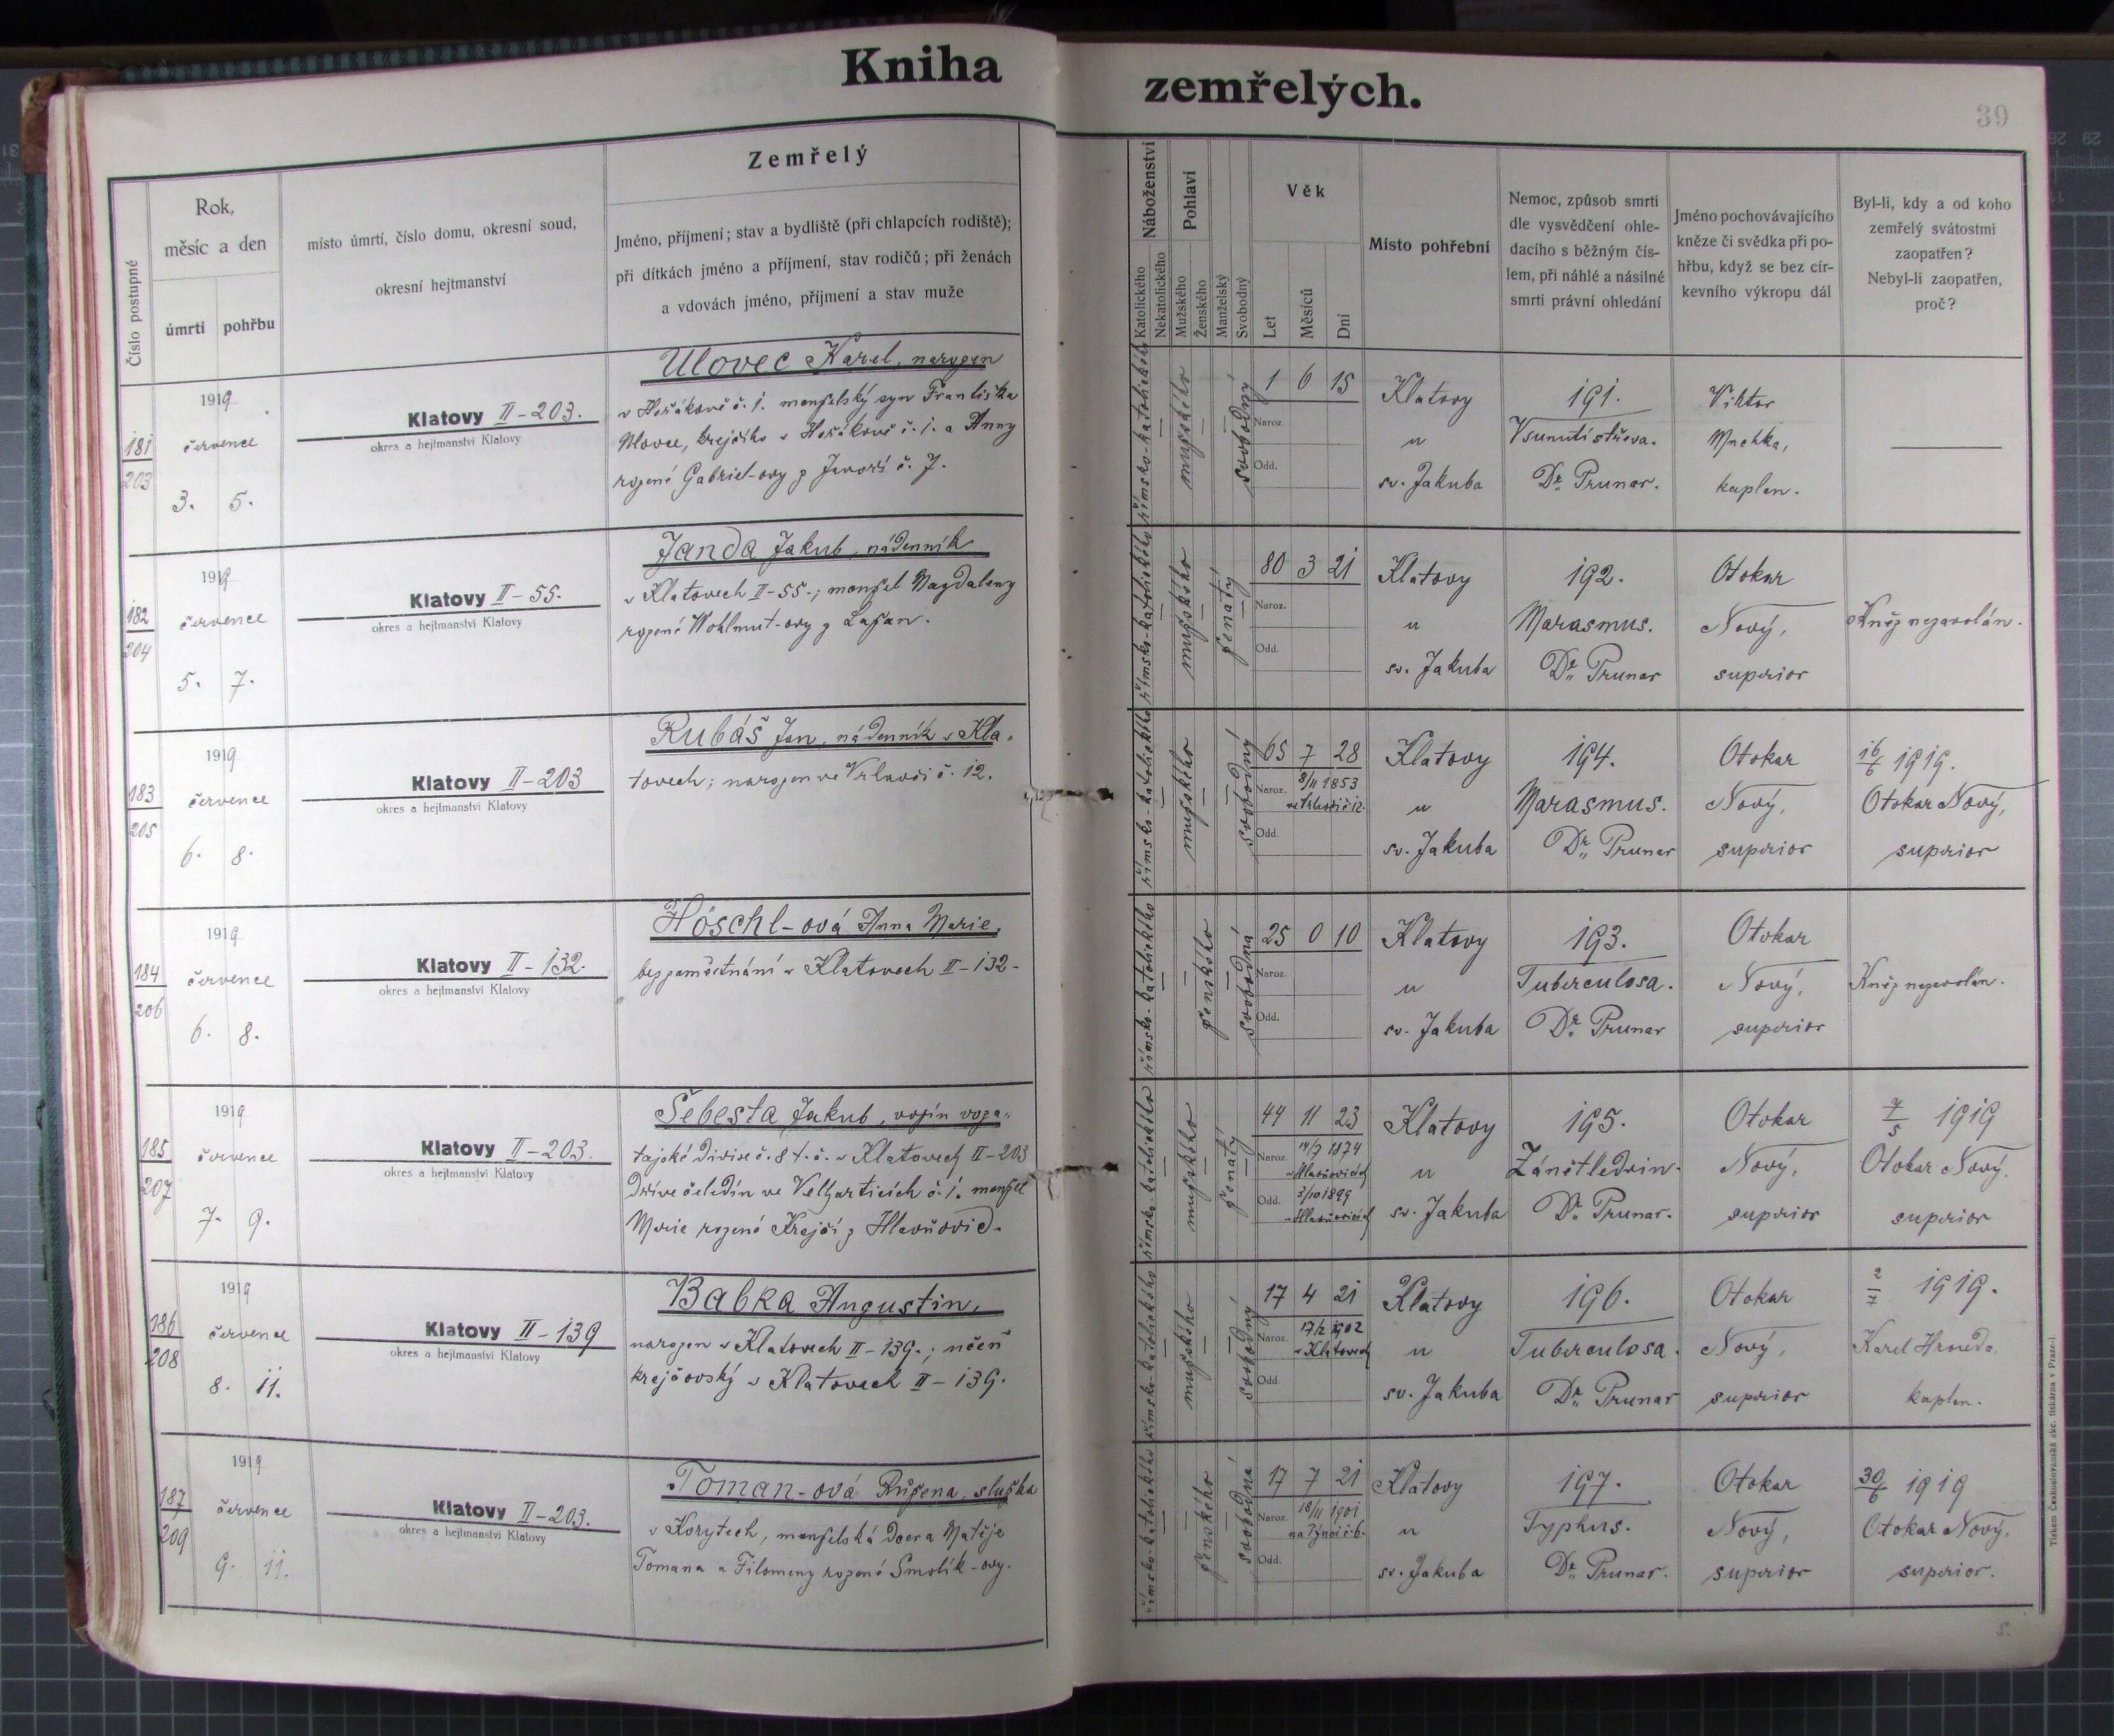 Kniha zemřelých.
39
Číslo postupné
Rok,
měsíc a den
úmrtí
pohřbu
místo úmrtí, číslo domu, okresní soud,
okresní hejtmanství
Zemřelý
Jméno, příjmení; stav a bydliště (při chlapcích rodiště);
při dítkách jméno a příjmení, stav rodičů; při ženách
a vdovách jméno, příjmení a stav muže
Náboženství
Katolického
Nekatolického
Pohlaví
Mužského
Ženského
Manželský
Svobodný
Věk
Let
Měsíců
Dní
Místo pohřební
Nemoc, způsob smrti
dle vysvědčení ohle-
dacího s běžným čís-
lem, při náhlé a násilné
smrti právní ohledání
Jméno pochovávajícího
kněze či svědka při po-
hřbu, když se bez cír-
kevního výkropu dál
Byl-li, kdy a od koho
zemřelý svátostmi
zaopatřen?
Nebyl-li zaopatřen,
proč?
181
203
1919
července
3. 5.
Klatovy II-203.
okres a hejtmanství Klatovy
Ulovec Karel, narozen
v Hořákově č. 1. manželský syn Františka
Ulovce, krejčího v Hořákově č. 1. a Anny
rozené Gabriel-ovy z Javoří č. 7.
římsko-katolického
mužského
svobodný
1 6 15
Naroz.
Odd.
Klatovy
u
sv. Jakuba
191.
Vsunutí střeva.
Dr. Prunar.
Viktor
Machka,
kaplan.
182
204
1919
července
5. 7.
Klatovy II-55.
okres a hejtmanství Klatovy
Janda Jakub, nádenník
v Klatovech II-55.; manžel Magdaleny
rozené Wohlmut-ovy z Lažan.
římsko-katolického
mužského
ženatý
80 3 21
Naroz.
Odd.
Klatovy
u
sv. Jakuba
192.
Marasmus.
Dr. Prunar
Otokar
Nový,
superior
Kněz nezavolán.
183
205
1919
července
6. 8.
Klatovy II-203
okres a hejtmanství Klatovy
Rubáš Jan, nádenník v Kla-
tovech; narozen ve Vrhavči č. 12.
římsko-katolického
mužského
svobodný
65 7 28
Naroz. 8/11 1853
ve Vrhavči č. 12.
Odd.
Klatovy
u
sv. Jakuba
194.
Marasmus.
Dr. Prunar
Otokar
Nový,
superior
16/6 1919.
Otokar Nový,
superior
184
206
1919
července
6. 8.
Klatovy II-132.
okres a hejtmanství Klatovy
Höschl-ová Anna Marie,
bez zaměstnání v Klatovech II-132-
římsko-katolického
ženského
svobodná
25 0 10
Naroz.
Odd.
Klatovy
u
sv. Jakuba
193.
Tuberculosa.
Dr. Prunar
Otokar
Nový,
superior
Kněz nezavolán.
185
207
1919
července
7. 9.
Klatovy II-203.
okres a hejtmanství Klatovy
Šebesta Jakub, vojín voza-
tajské divise č. 8 t. č. v Klatovech II-203
dříve čeledín ve Velharticích č. 1. manžel
Marie rozené Krejčí z Hlavňovic.
římsko-katolického
mužského
ženatý
44 11 23
Naroz. 14/7 1874
v Hlavňovicích
Odd. 3/10 1899
v Hlavňovicích
Klatovy
u
sv. Jakuba
195.
Zánět ledvin.
Dr. Prunar.
Otokar
Nový,
superior
7/5 1919
Otokar Nový.
superior
186
208
1919
července
8. 11.
Klatovy II-139
okres a hejtmanství Klatovy
Babka Augustin,
narozen v Klatovech II-139.; učeň
krejčovský v Klatovech II-139.
římsko-katolického
mužského
svobodný
17 4 21
Naroz. 17/2 1902
v Klatovech
Odd.
Klatovy
u
sv. Jakuba
196.
Tuberculosa.
Dr. Prunar
Otokar
Nový,
superior
2/7 1919.
Karel Hrneda.
kaplan.
187
209
1919
července
9. 11.
Klatovy II-203.
okres a hejtmanství Klatovy
Toman-ová Růžena, služka
v Korytech, manželská dcera Matěje
Tomana a Filomeny rozené Smolík-ovy.
římsko-katolického
ženského
svobodná
17 7 21
Naroz. 18/11 1901
na Týnci č. 6.
Odd.
Klatovy
u
sv. Jakuba
197.
Typhus.
Dr. Prunar.
Otokar
Nový,
superior
30/6 1919
Otokar Nový,
superior.
Tiskem Československá akc. tiskárna v Praze-I.